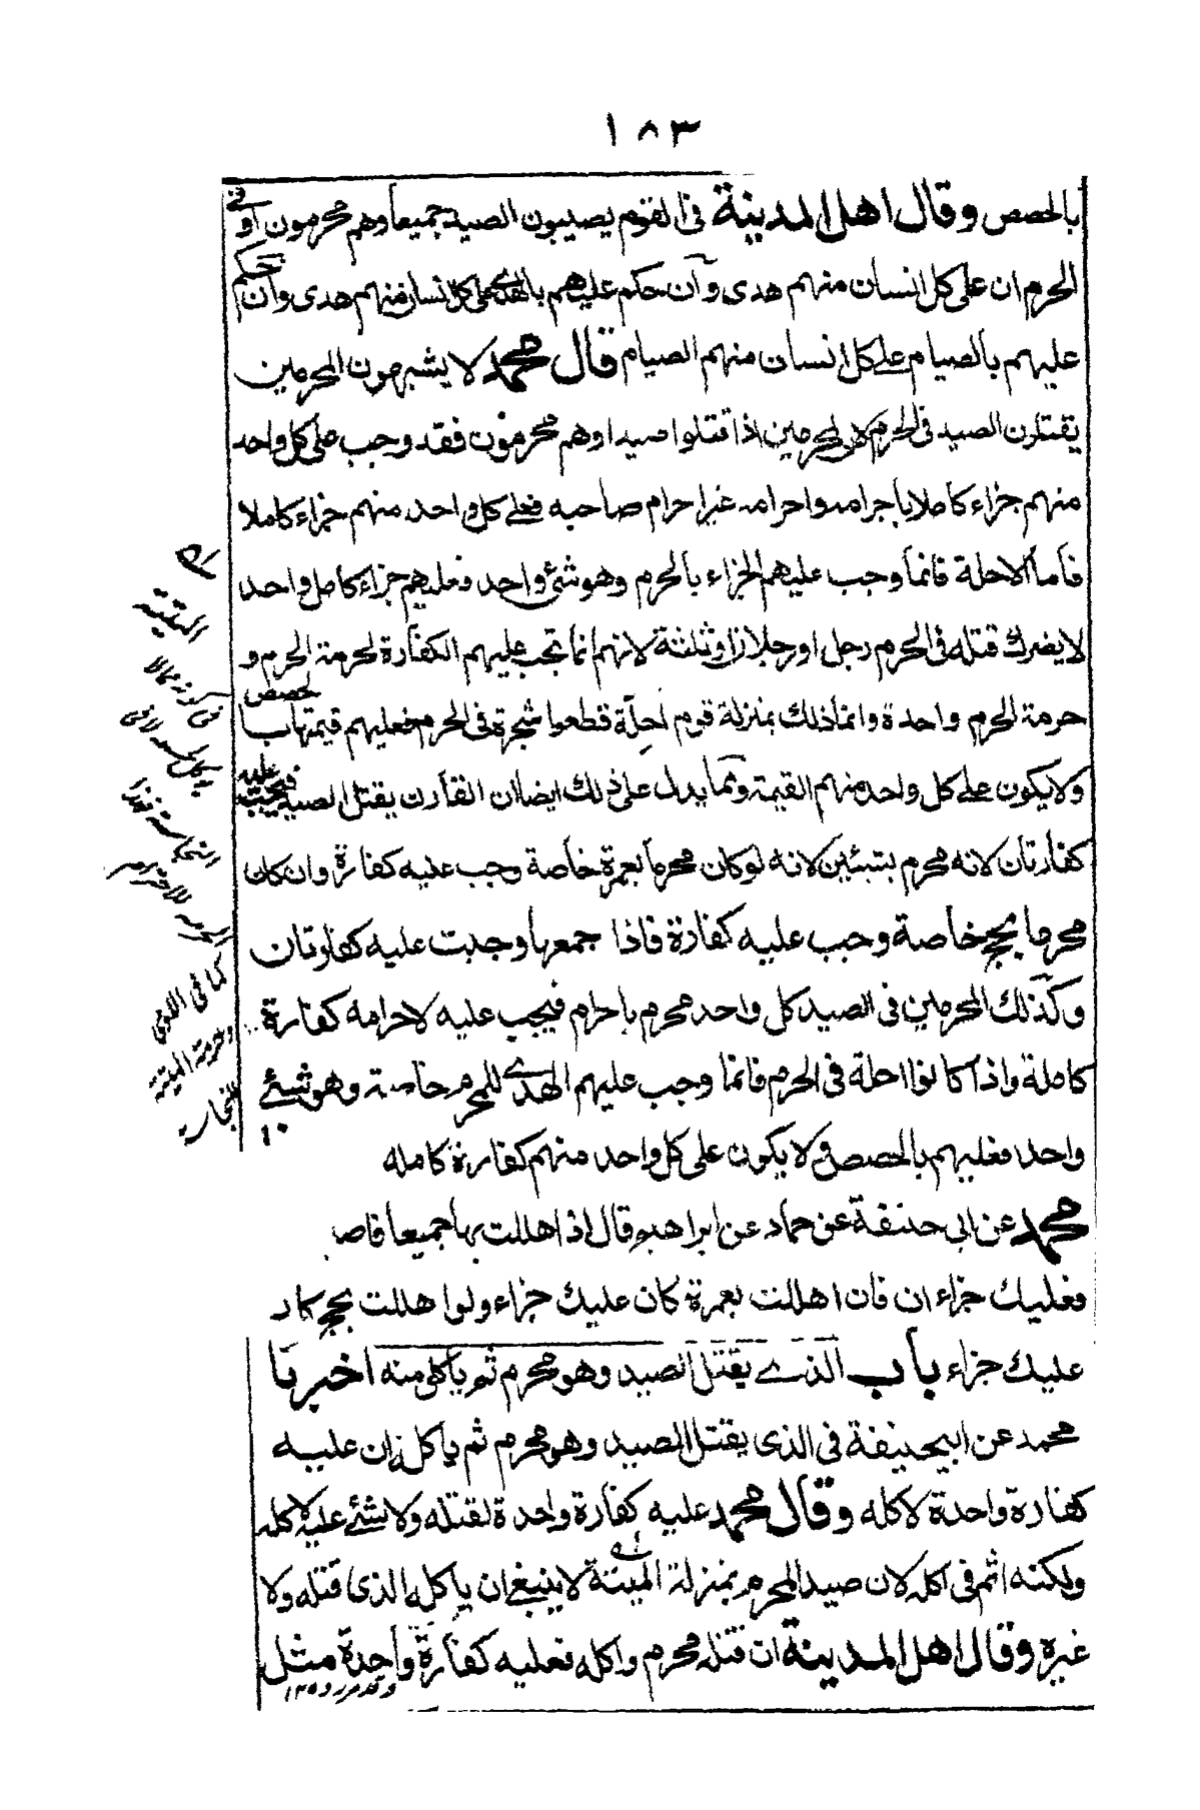 ١٨٣
بالحصص وقال اهل المدينة فى القوم يصيبون الصيد جميعا وهم محرمون او فى
الحرم ان على كل انسان منهم هدى وان حكم عليهم بالهدى على كل انسان منهم هدى وان حكم
عليهم بالصيام على كل انسان منهم الصيام قال محمد لا يشبهون المحرمين
يقتلون الصيد فى الحرم كل المحرمين اذا قتلوا صيدا وهم محرمون فقد وجب على كل واحد
منهم جزاء كاملا باحرامه واحرامه غير احرام صاحبه فعلى كل واحد منهم جزاء كاملا
فاما الاحلة فانما وجب عليهم الجزاء بالحرم وهو شئ واحد فعليهم جزاء كامل واحد
لا يضرك قتله فى الحرم رجل او رجلان او ثلثة لانهم انما تجب عليهم الكفارة لحرمة الحرم و
حرمة الحرم واحدة وانما ذلك بمنزلة قوم احلة قطعوا شجرة فى الحرم فعليهم قيمتها بالحصص
ولا يكون على كل واحد منهم القيمة ومما يدل على ذلك ايضا ان القارن يقتل الصيد فيجب عليه
كفارتان لانه محرم بشيئين لانه لو كان محرما بعمرة خاصة وجب عليه كفارة وان كان
محرما بحج خاصة وجب عليه كفارة فاذا جمعها وجبت عليه كفارتان
وكذلك المحرمين فى الصيد كل واحد محرم باحرام فيجب عليه لاحرامه كفارة
كاملة واذا كانوا احلة فى الحرم فانما وجب عليهم الهدى للحرم خاصة وهو شئ
واحد فعليهم بالحصص ولا يكون على كل واحد منهم كفارة كامله
محمد عن ابى حنيفة عن حماد عن ابراهيم قال اذا اهللت بها جميعا فاصـ
فعليك جزاء ان فان اهللت بعمرة كان عليك جزاء ولو اهللت بحج كان
عليك جزاء باب الذى يقتل الصيد وهو محرم ثم ياكل منه اخبرنا
محمد عن ابيحنيفة فى الذى يقتل الصيد وهو محرم ثم ياكل ان عليه
كفارة واحدة لاكله وقال محمد عليه كفارة واحدة لقتله ولا شئ عليه لاكله
ولكنه اثم فى اكله لان صيد المحرم بمنزلة الميتة لا ينبغى ان ياكل الذى قتله ولا
غيره وقال اهل المدينة ان قتله محرم واكله فعليه كفارة واحدة مثل